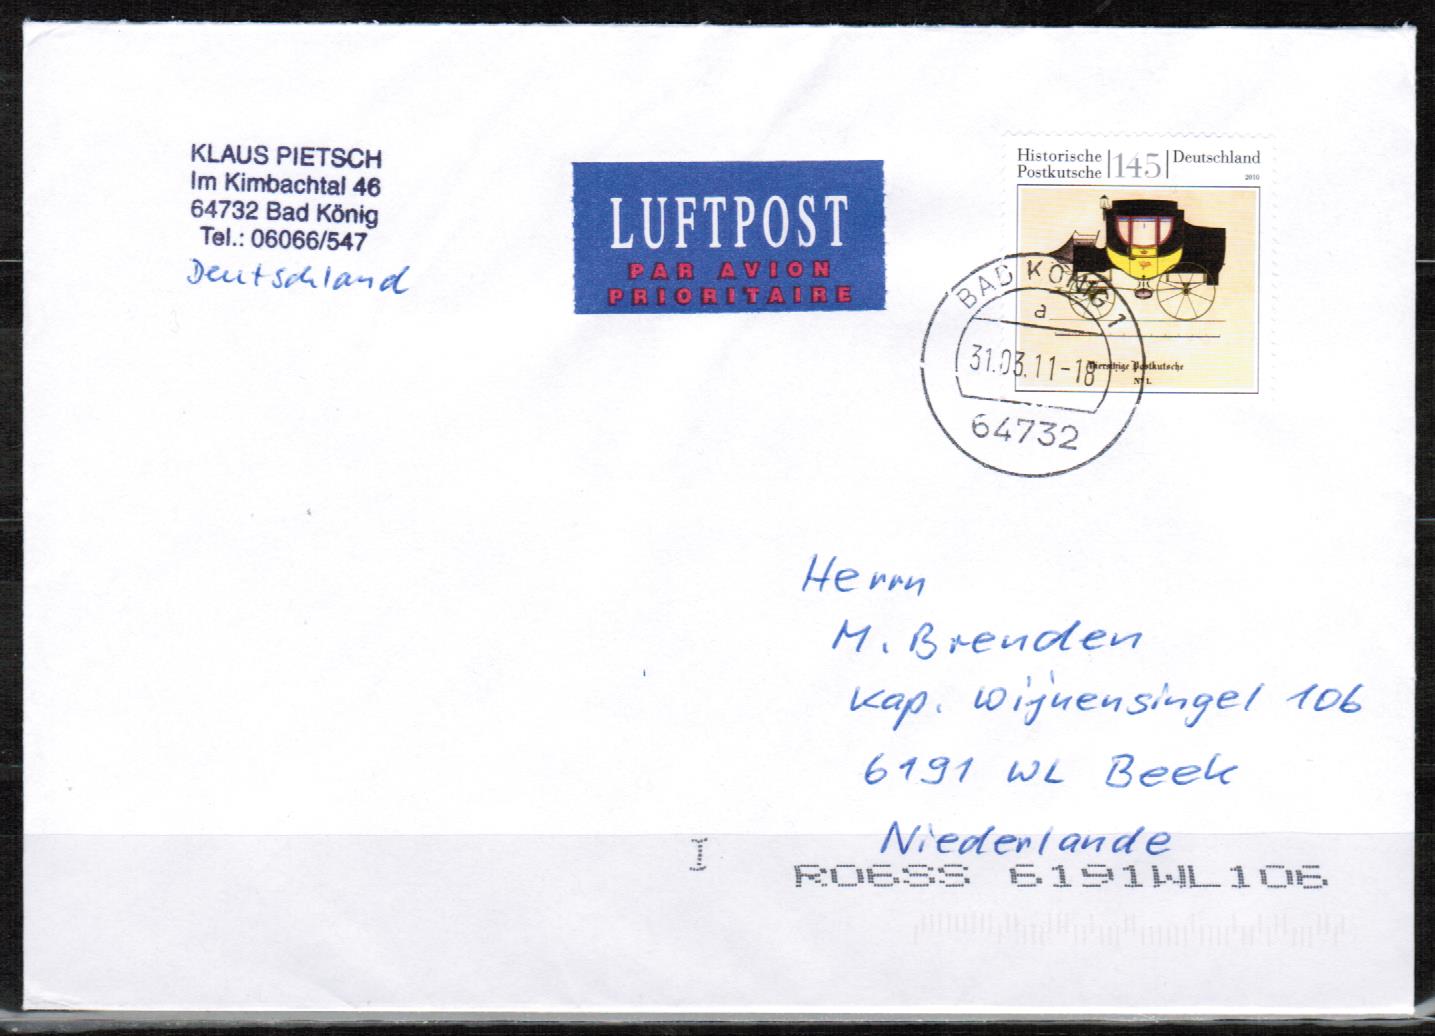 KLAUS PIETSCH
Im Kimbachtal 46
64732 Bad König
Tel.: 06066/547
Deutschland
LUFTPOST
PAR AVION
PRIORITAIRE
Historische
Postkutsche
145
Deutschland
2010
Viersitzige Postkutsche
No 1.
BAD KÖNIG 1
a
31.03.11-18
64732
Herrn
M. Brenden
Kap. Wijnensingel 106
6191 WL Beek
Niederlande
R06SS 6191WL106